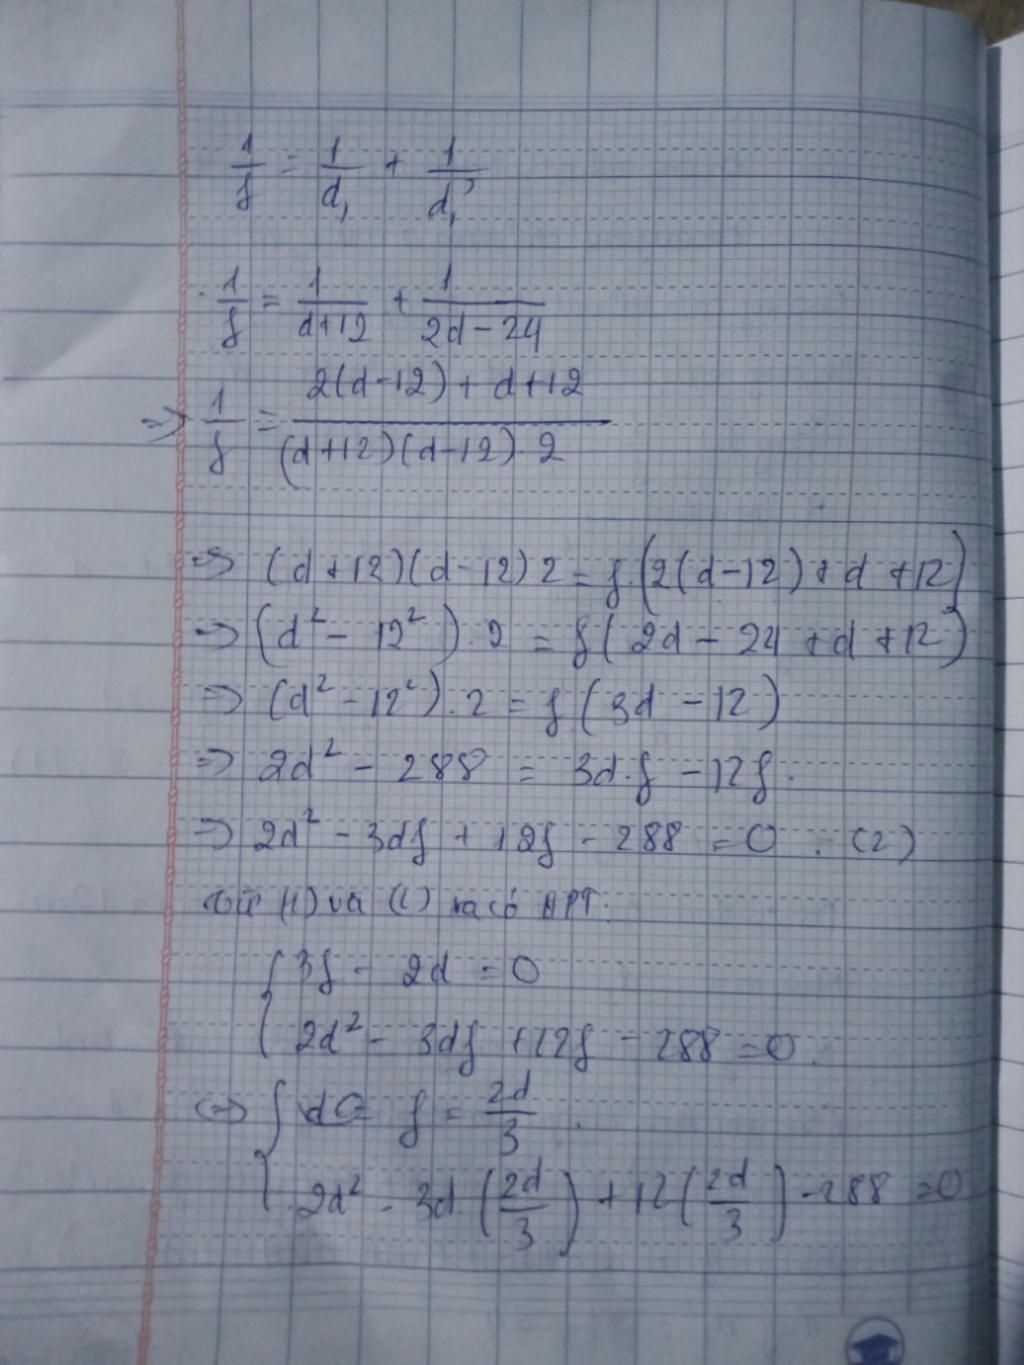 1/f = 1/d₁ + 1/d₁'
1/f = 1/(d+12) + 1/(2d-24)
=> 1/f = (2(d-12) + d+12)/((d+12)(d-12).2)
=> (d+12)(d-12)2 = f.(2(d-12)+d+12)
=> (d² - 12²).2 = f(2d - 24 + d + 12)
=> (d² - 12²).2 = f(3d - 12)
=> 2d² - 288 = 3d.f - 12f.
=> 2d² - 3df + 12f - 288 = 0. (2)
Từ (1) và (2) ta có HPT:
{ 3f - 2d = 0
2d² - 3df + 12f - 288 = 0.
<=> { f = 2d/3.
2d² - 3d.(2d/3) + 12(2d/3) - 288 = 0